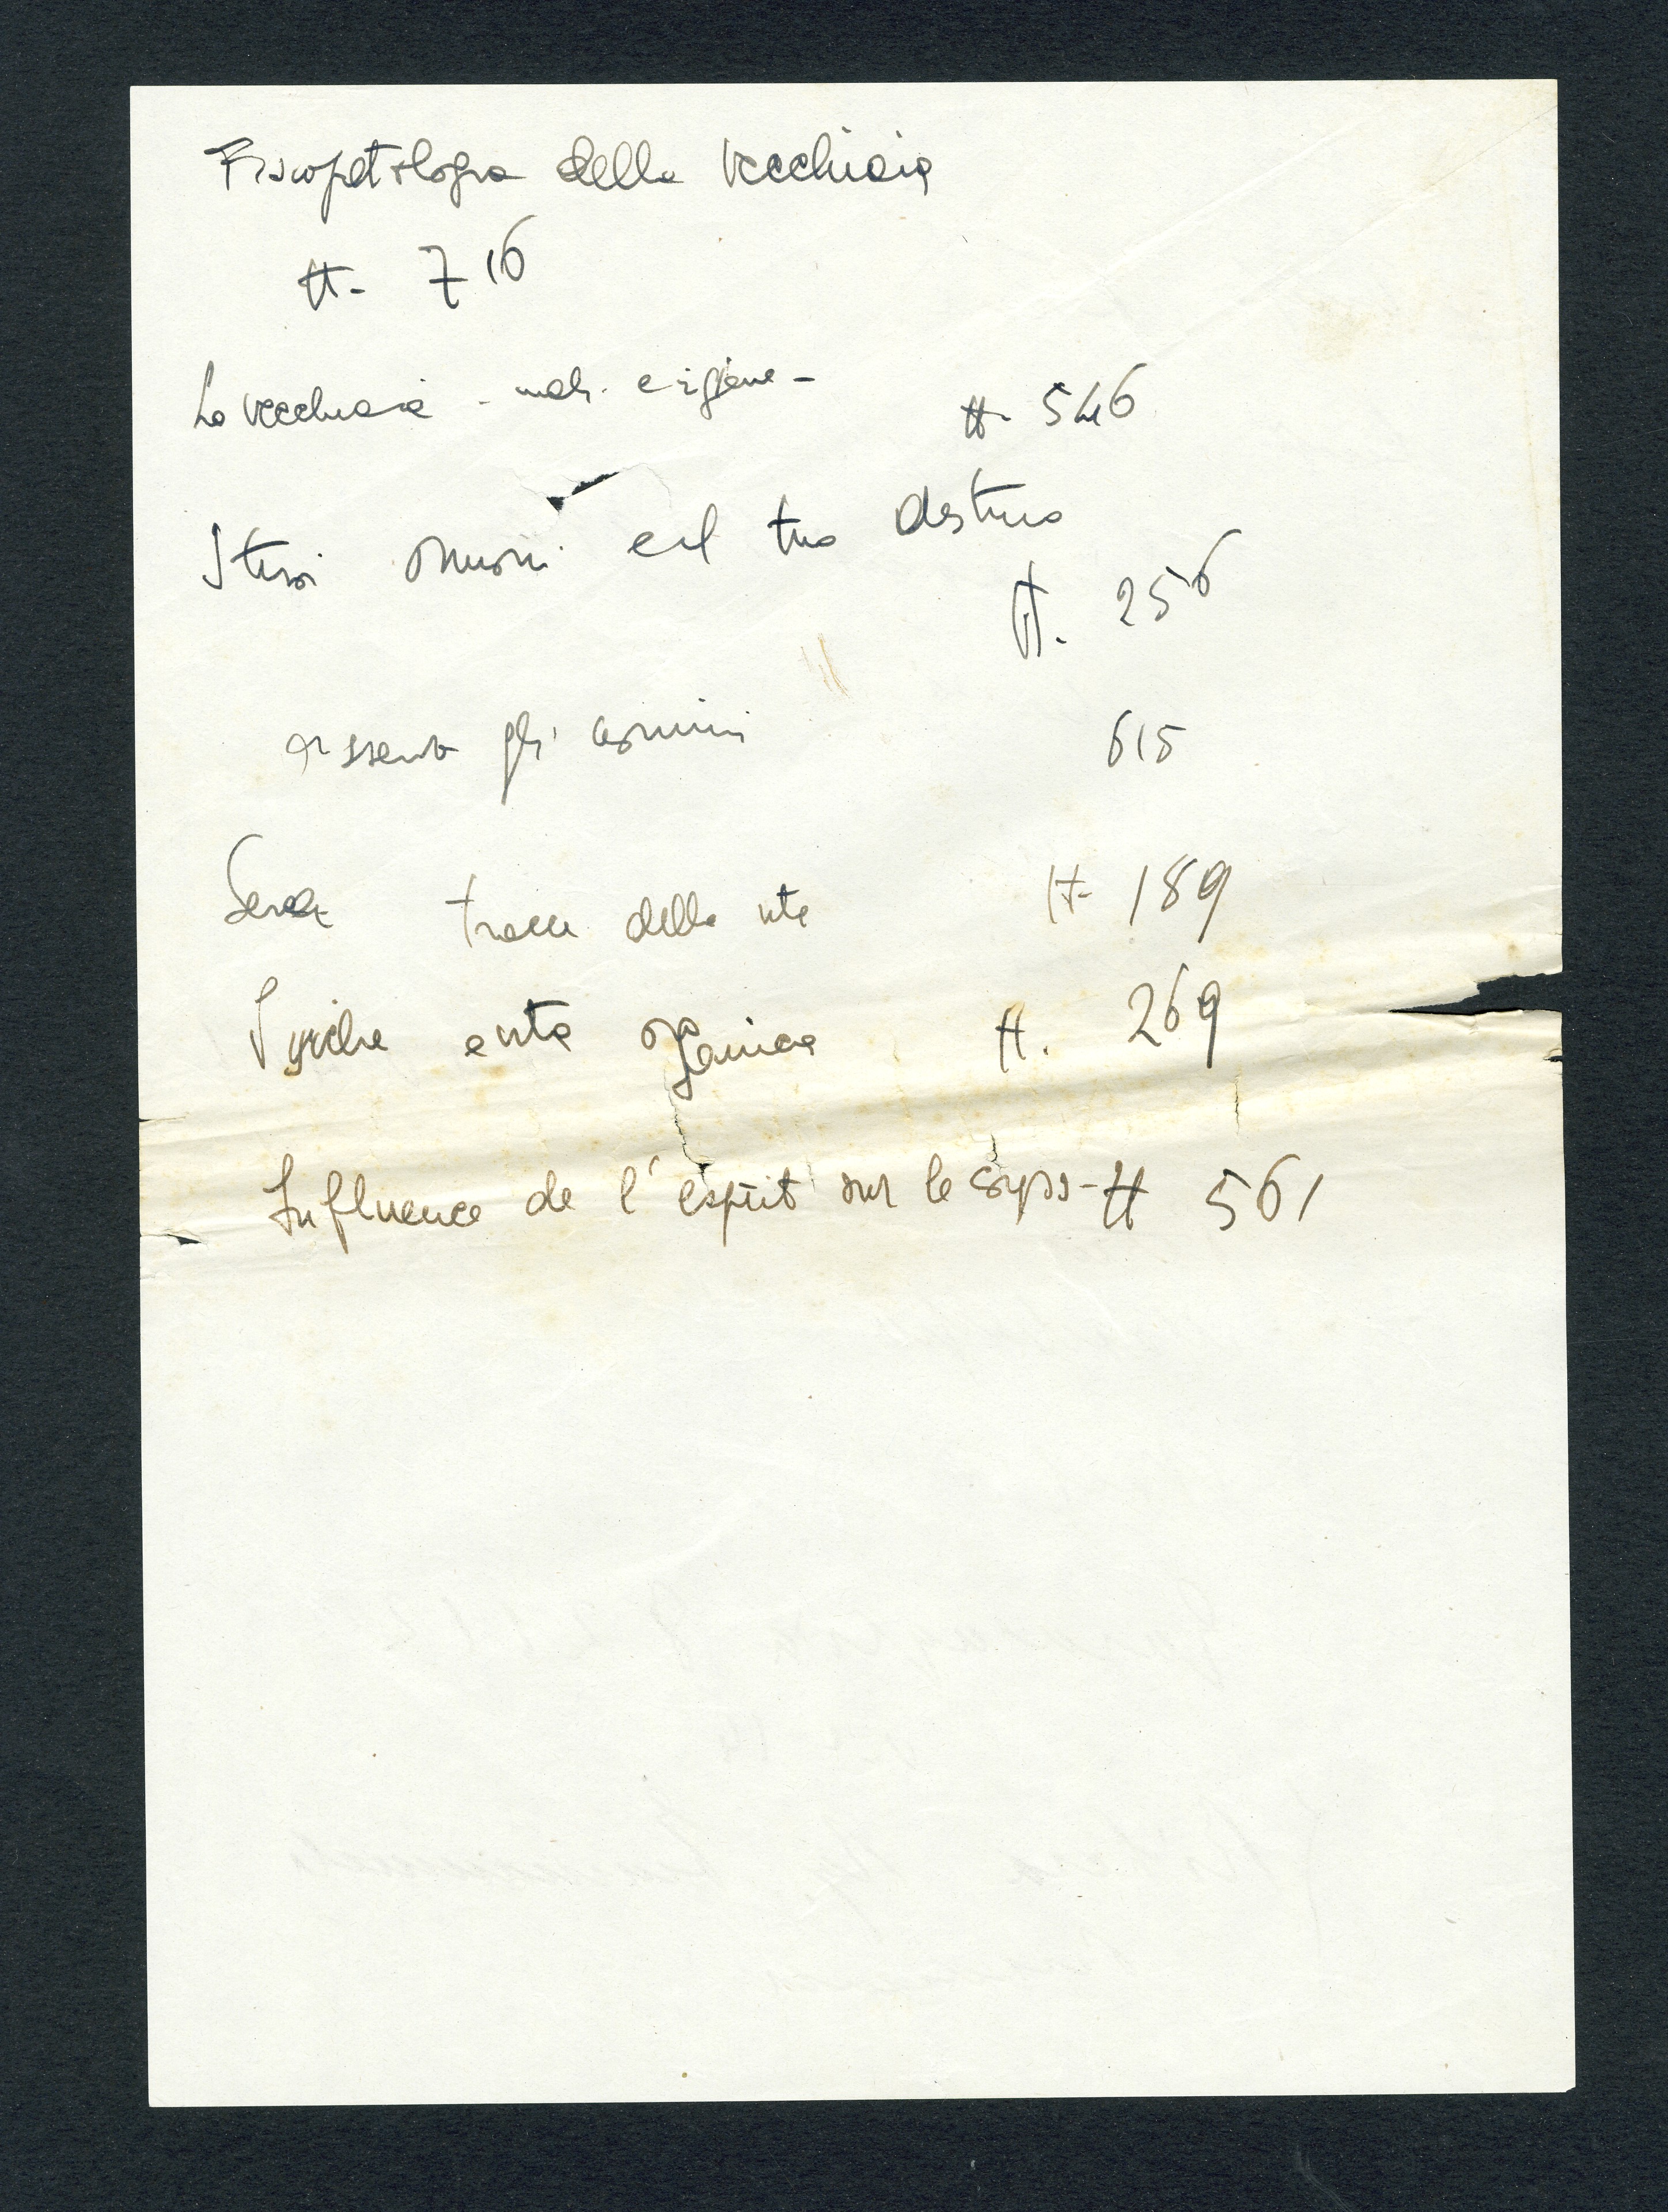 Fisiopatologia della Vecchiaia
H. 716
La vecchiaia - mal. e igiene - H. 546
I tuoi ormoni e il tuo destino
H. 256
gli uomini 615
tracce della vita H. 189
Psiche e vita organica H. 269
Influence de l'esprit sur le corps - H 561